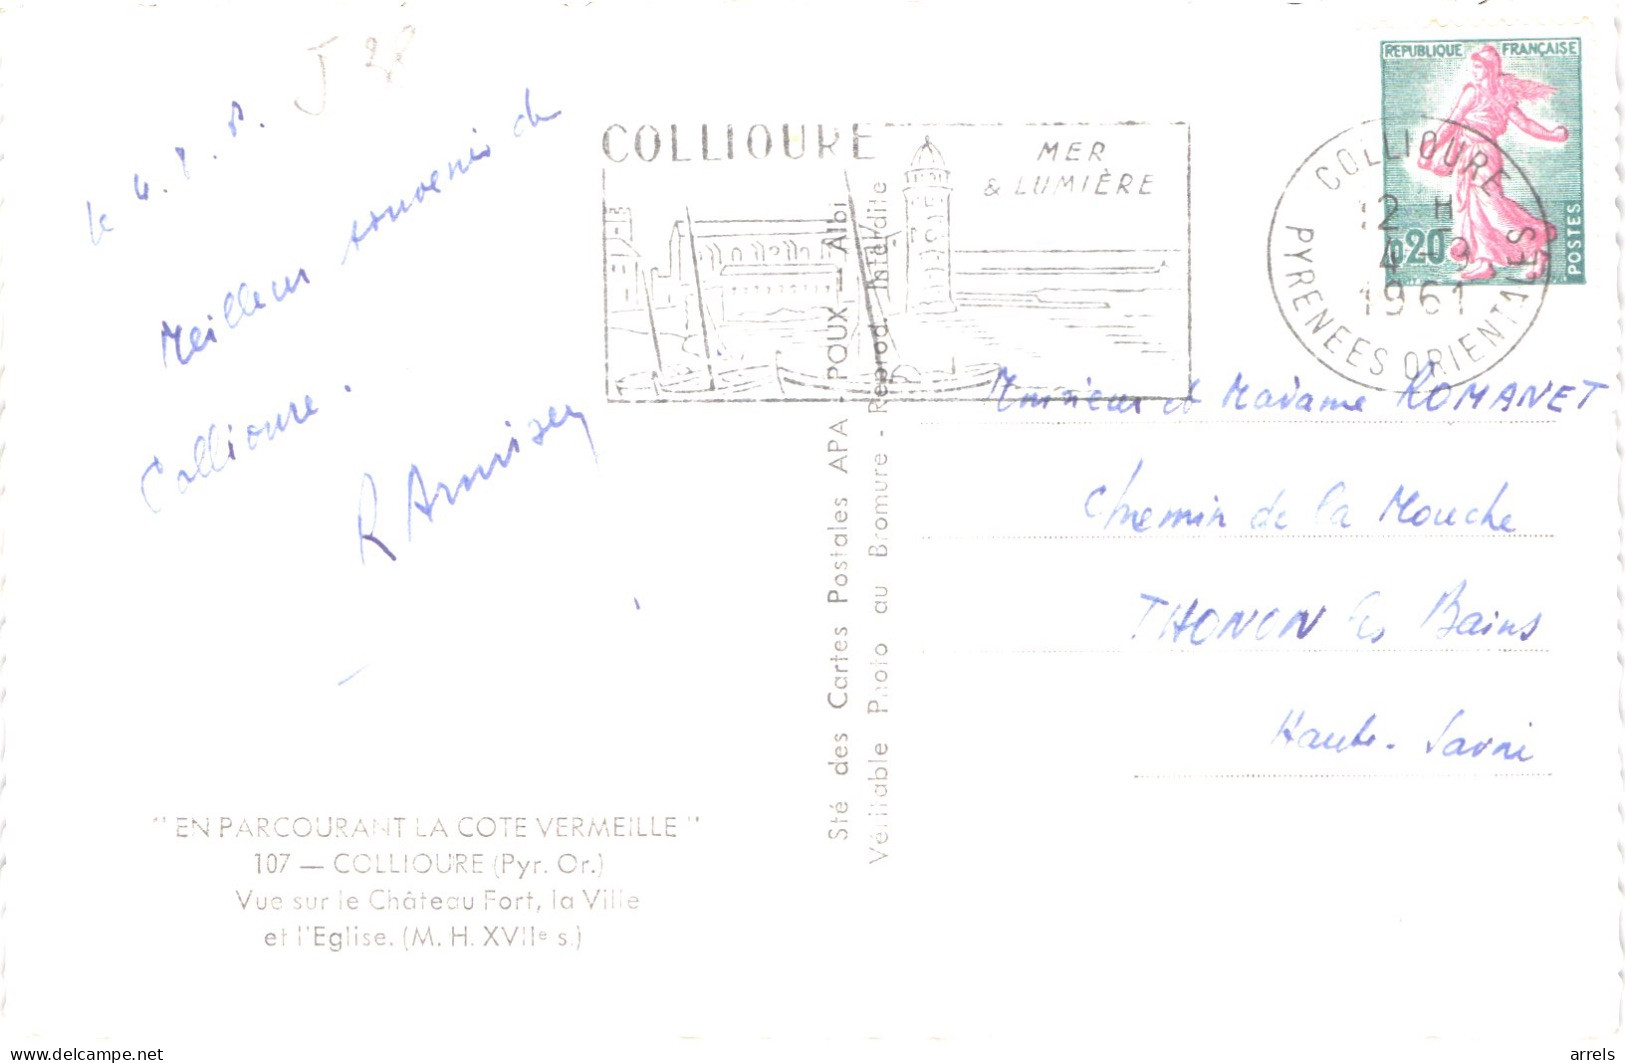 le 4.8.
Meilleur souvenir de
Collioure.
"EN PARCOURANT LA COTE VERMEILLE"
107 — COLLIOURE (Pyr. Or.)
Vue sur le Château Fort, la Ville
et l'Eglise. (M. H. XVIIe s.)
COLLIOURE
MER
& LUMIÈRE
Sté des Cartes Postales APA - POUX - Albi
Véritable Photo au Bromure - Reprod. Interdite
REPUBLIQUE FRANÇAISE
0,20
POSTES
COLLIOURE
12 H
1961
PYRENEES ORIENTALES
Monsieur et Madame ROMANET
Chemin de la Mouche
THONON les Bains
Haute-Savoie
© delcampe.net
arrels